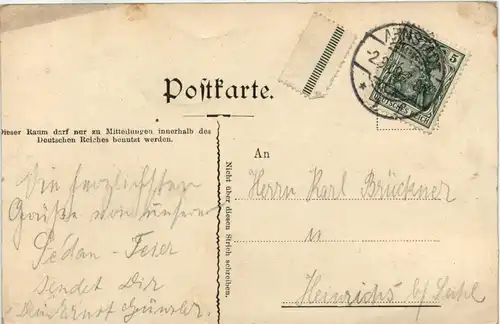 ARNSTADT
5
DEUTSCHES REICH
Postkarte.
Dieser Raum darf nur zu Mitteilungen innerhalb des
Deutschen Reiches benutzt werden.
Nicht über diesen Strich schreiben.
Die herzlichsten
Grüße von unserer
Sedan-Feier
sendet Dir
Günzler.
An
Herrn Karl Brückner
in
Heinrichs b/ Suhl